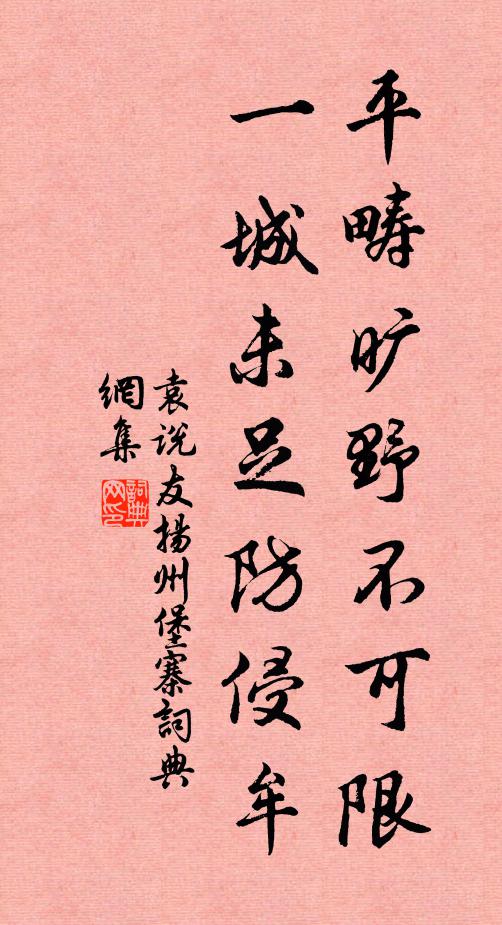 平畴旷野不可限
一城未足防侵牟
袁说友揚州堡寨詞典
網集
詞典
网印